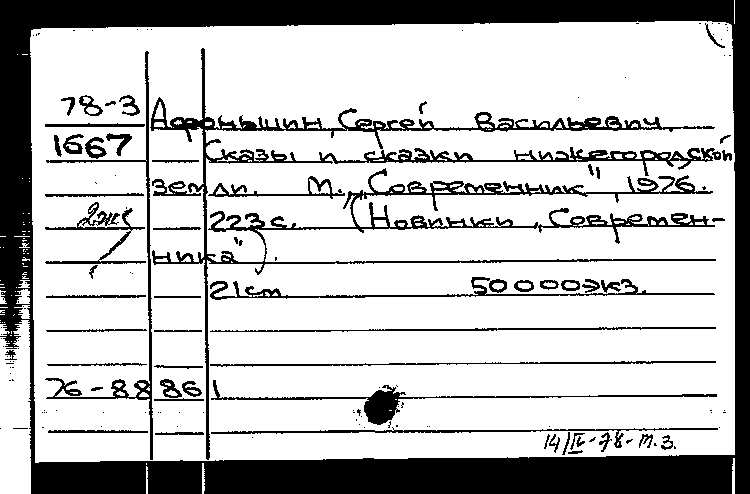 78-3
1667
2экз
Афоньшин, Сергей Васильевич.
Сказы и сказки нижегородской
земли. М., „Современник", 1976.
223с. (Новинки „Современ-
ника").
21см. 50000экз.
76-88861
14/IV-78-т.з.